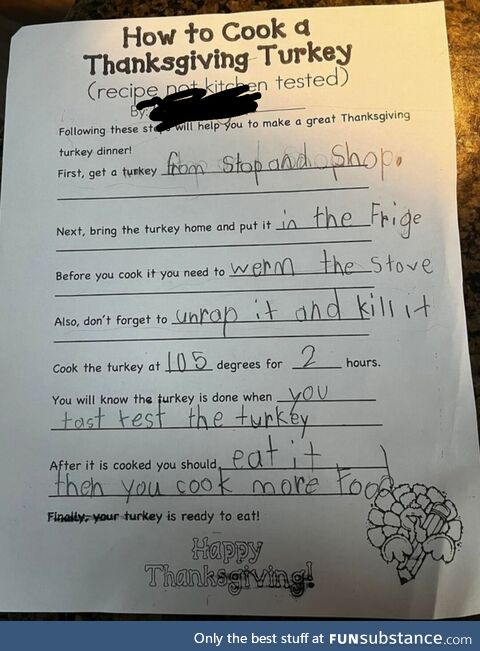 How to Cook a
Thanksgiving Turkey
(recipe not kitchen tested)
By:
Following these steps will help you to make a great Thanksgiving
turkey dinner!
First, get a turkey from Stop and Shop.
Next, bring the turkey home and put it in the Frige
Before you cook it you need to werm the stove
Also, don't forget to unrap it and kill it
Cook the turkey at 105 degrees for 2 hours.
You will know the turkey is done when you
tast test the turkey
After it is cooked you should eat it
then you cook more Food
Finally, your turkey is ready to eat!
Happy
Thanksgiving!
Only the best stuff at FUNsubstance.com